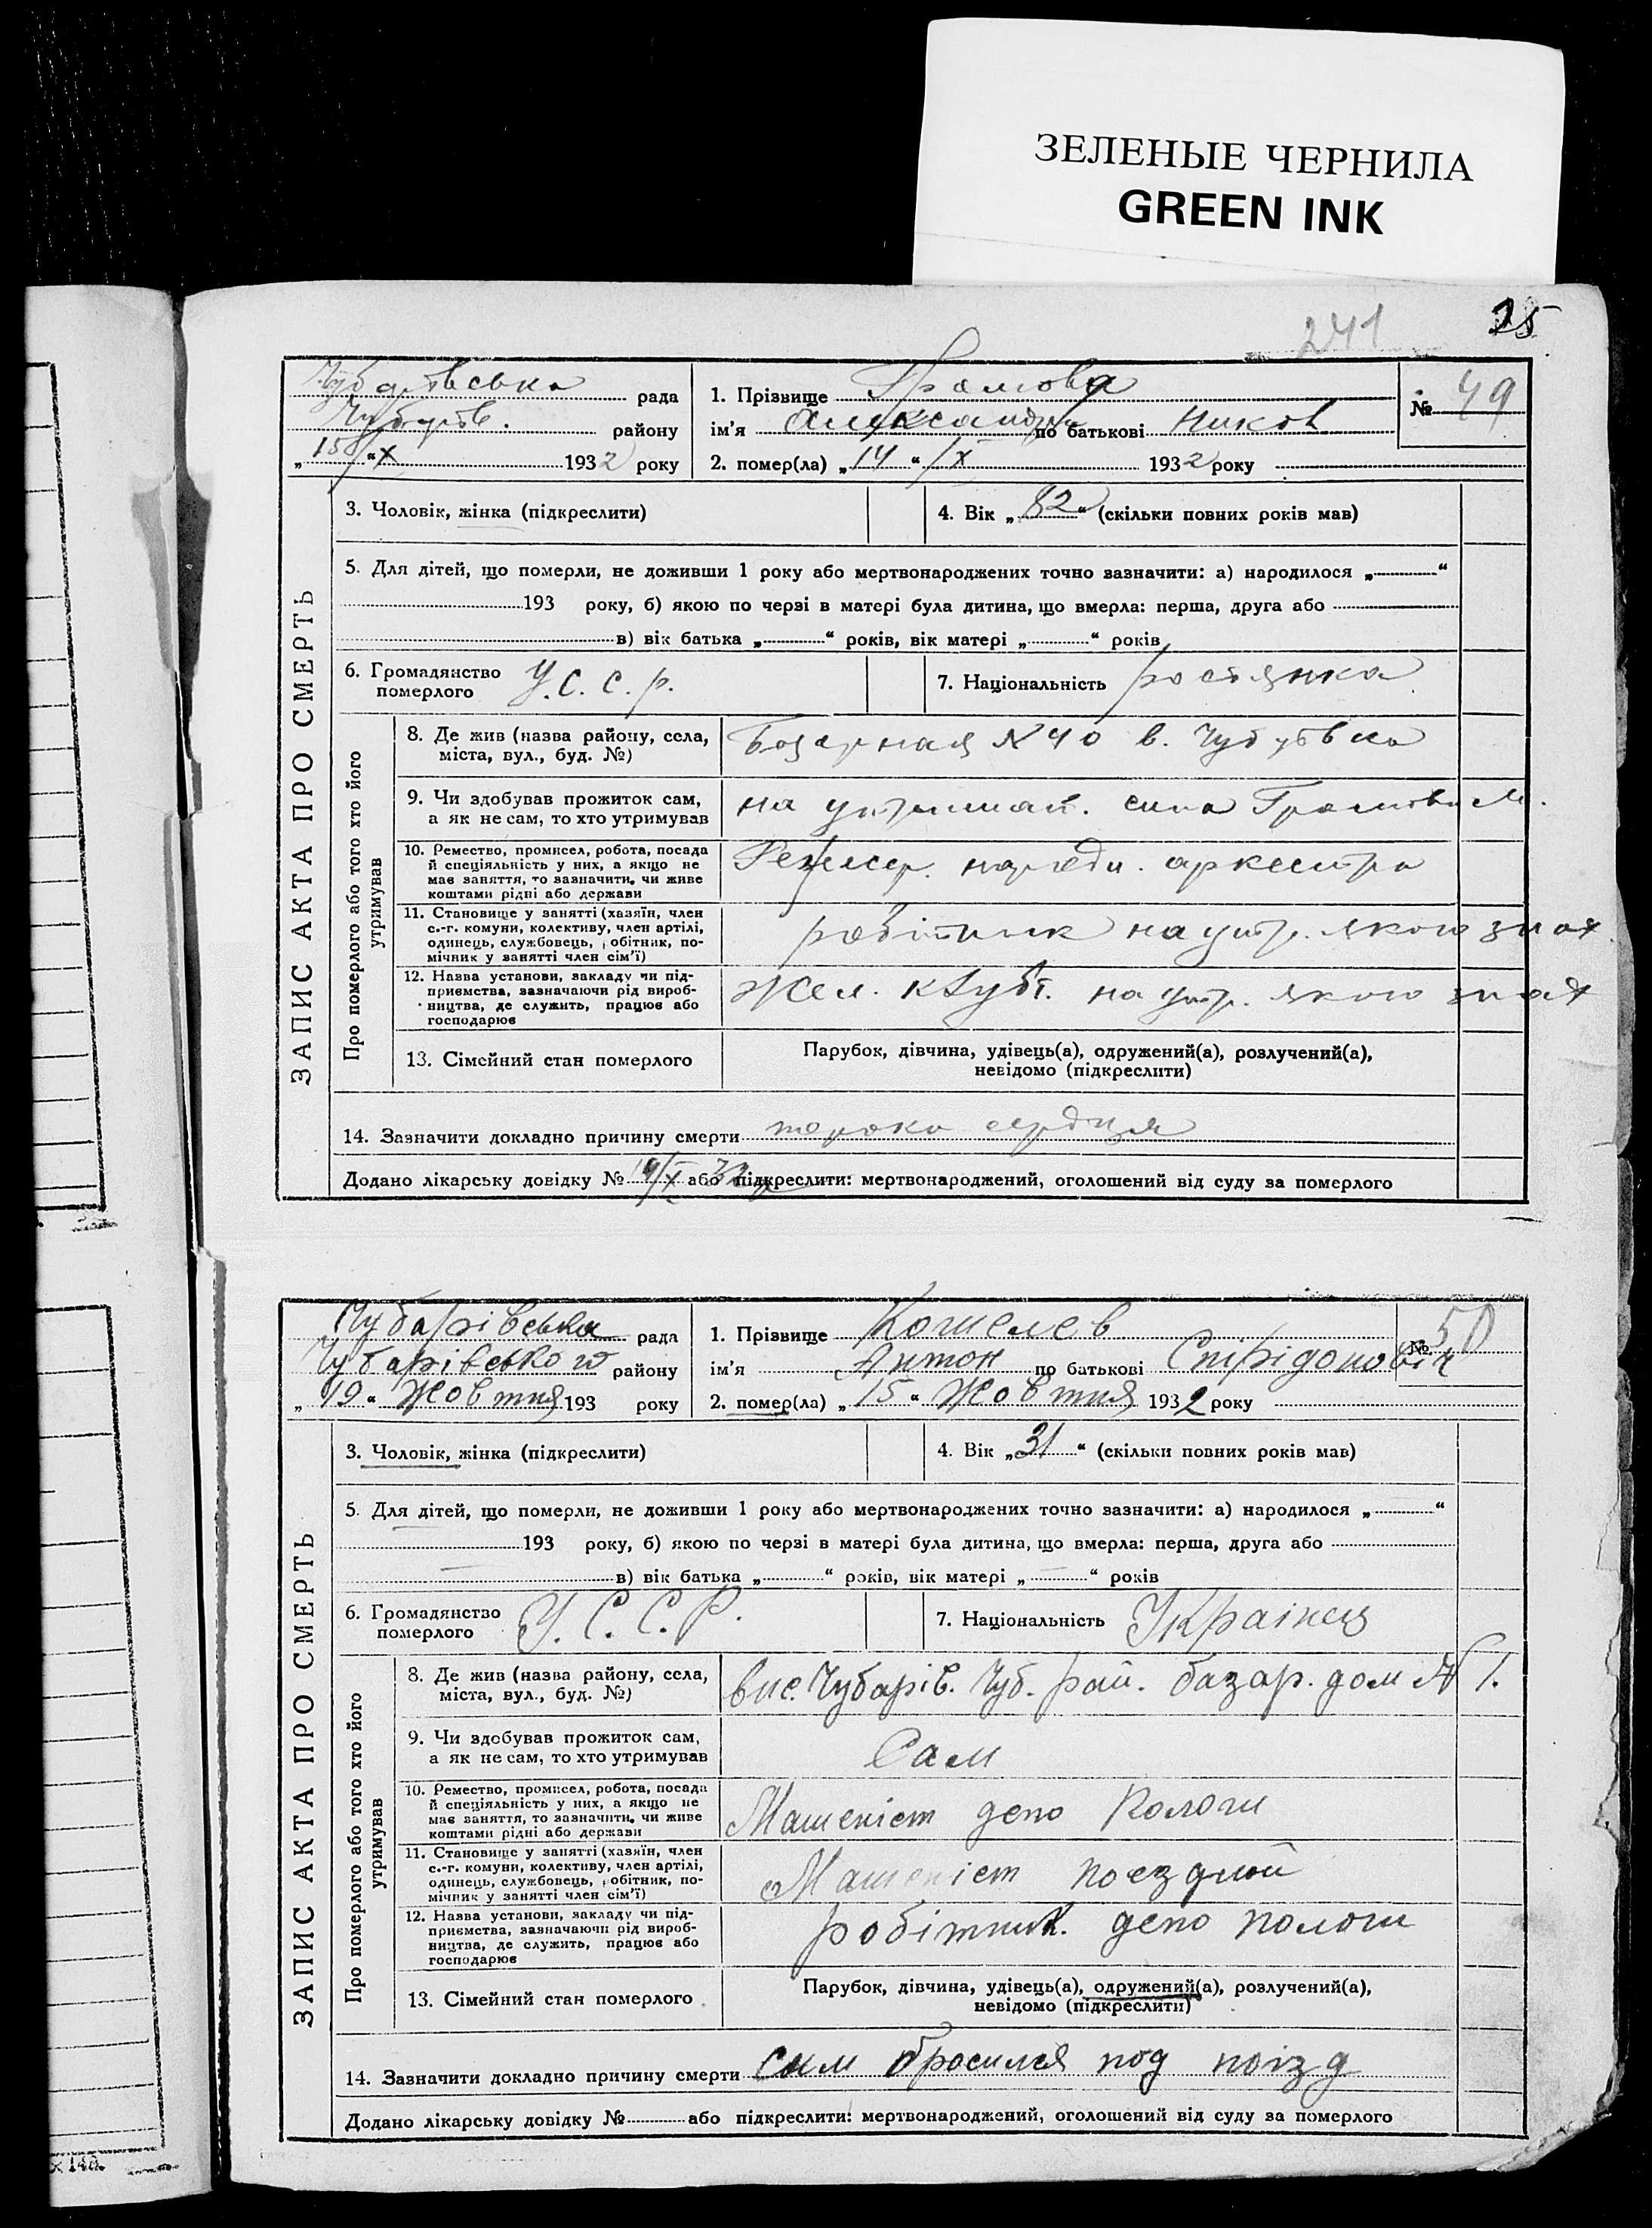 ЗЕЛЕНЫЕ ЧЕРНИЛА
GREEN INK
241 25
Чубарівська рада
1. Прізвище Громова
№ 49
Чубарів. району
ім'я Александра по батькові Никол
"15" X 1932 року
2. помер(ла) "14" IX 1932 року
3. Чоловік, жінка (підкреслити)
4. Вік "82" (скільки повних років мав)
5. Для дітей, що померли, не доживши 1 року або мертвонароджених точно зазначити: а) народилося „ “
193 року, б) якою по черзі в матері була дитина, що вмерла: перша, друга або
в) вік батька „ “ років, вік матері „ “ років
6. Громадянство померлого У.С.С.Р.
7. Національність
ЗАПИС АКТА ПРО СМЕРТЬ
Про померлого або того хто його утримував
8. Де жив (назва району, села,
міста, вул., буд. №)
Базарная № 40 в.
9. Чи здобував прожиток сам,
а як не сам, то хто утримував
на утриман. сина Громова М.
10. Ремество, промисел, робота, посада
й спеціяльність у них, а якщо не
має заняття, то зазначити, чи живе
коштами рідні або держави
Режисер. оркестра
11. Становище у занятті (хазяїн, член
с.-г. комуни, колективу, член артілі,
одинець, службовець, робітник, по-
мічник у занятті член сім'ї)
робітник на утр. якого знах
12. Назва установи, закладу чи під-
приємства, зазначаючи рід вироб-
ництва, де служить, працює або
господарює
Жел. клуб. на утр. якого знах
13. Сімейний стан померлого
Парубок, дівчина, удівець(а), одружений(а), розлучений(а),
невідомо (підкреслити)
14. Зазначити докладно причину смерти порока сердця
Додано лікарську довідку № або підкреслити: мертвонароджений, оголошений від суду за померлого
Чубарівська рада
1. Прізвище Кошелев
№ 50
Чубарівського району
ім'я Антон по батькові Спірідоновіч
„19“ Жовтня 193 року
2. помер(ла) „15“ Жовтня 1932 року
3. Чоловік, жінка (підкреслити)
4. Вік „31“ (скільки повних років мав)
5. Для дітей, що померли, не доживши 1 року або мертвонароджених точно зазначити: а) народилося „ “
193 року, б) якою по черзі в матері була дитина, що вмерла: перша, друга або
в) вік батька „ “ років, вік матері „ “ років
6. Громадянство померлого У.С.С.Р.
7. Національність Українец
ЗАПИС АКТА ПРО СМЕРТЬ
Про померлого або того хто його утримував
8. Де жив (назва району, села,
міста, вул., буд. №)
в с. Чубарів. Чуб. рай. базар. дом № 1.
9. Чи здобував прожиток сам,
а як не сам, то хто утримував
Сам
10. Ремество, промисел, робота, посада
й спеціяльність у них, а якщо не
має заняття, то зазначити, чи живе
коштами рідні або держави
Машеніст депо Пологи
11. Становище у занятті (хазяїн, член
с.-г. комуни, колективу, член артілі,
одинець, службовець, робітник, по-
мічник у занятті член сім'ї)
Машеніст поездной
12. Назва установи, закладу чи під-
приємства, зазначаючи рід вироб-
ництва, де служить, працює або
господарює
робітник. депо пологи
13. Сімейний стан померлого
Парубок, дівчина, удівець(а), одружений(а), розлучений(а),
невідомо (підкреслити)
14. Зазначити докладно причину смерти сам бросился под поізд
Додано лікарську довідку № або підкреслити: мертвонароджений, оголошений від суду за померлого